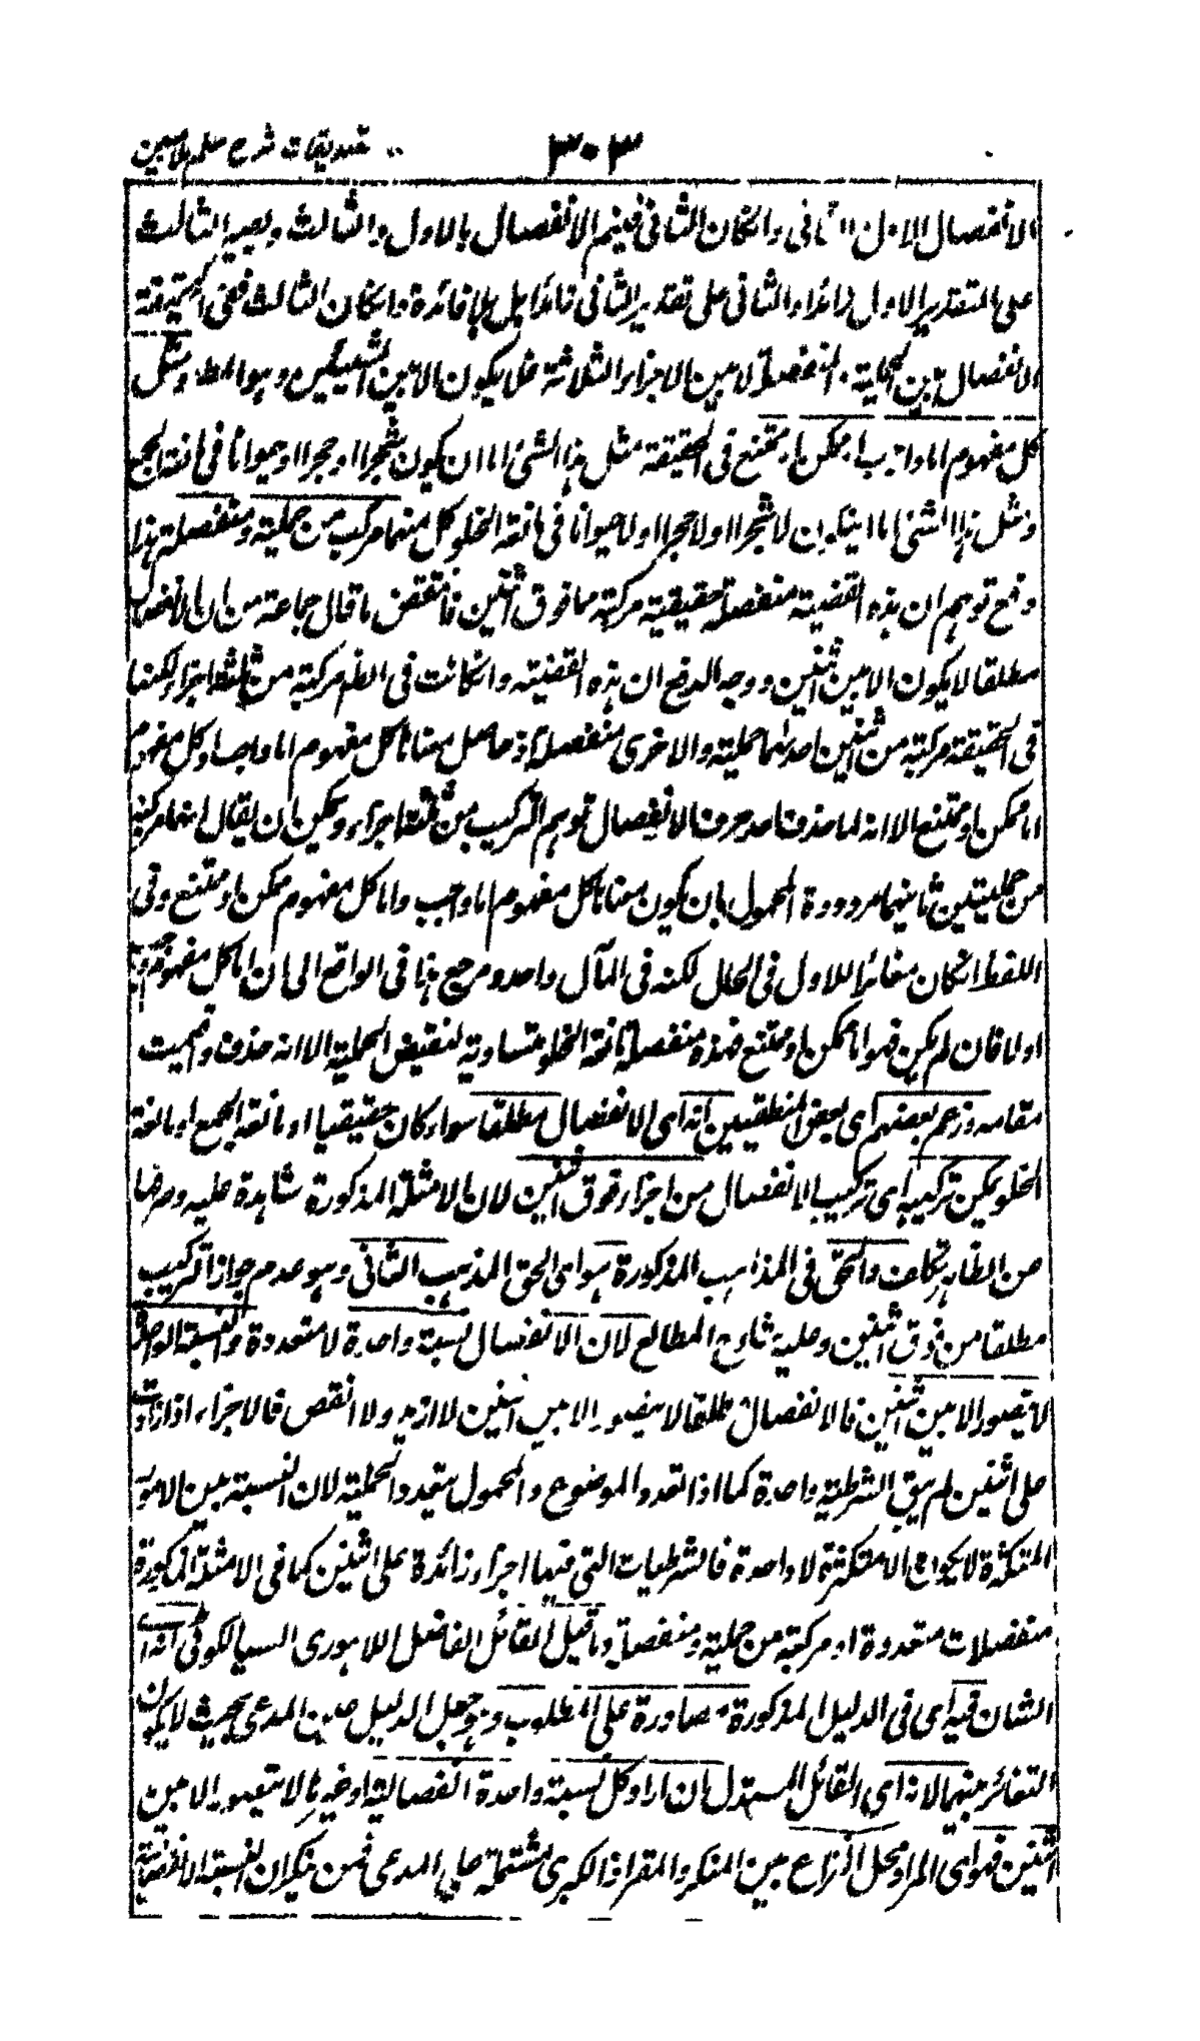 تصدیقات شرح سلم ملا مبین
۳۰۳
الانفصال الاول والثانی وانکان الثانی فیتم الانفصال بالاول والثالث ویصیر الثالث
علی التقدیر الاول زائدا والثانی علی تقدیر الثانی زائدا بل بلا فائدة وانکان الثالث ففی الحقیقة
الانفصال بین الحملیة والمنفصلة لا بین الاجزاء الثلاثة فلا یکون الا بین الشیئین وهو المط ومثل
کل مفهوم اما واجب او ممکن او ممتنع فی الحقیقة مثل هذا الشیئ اما ان یکون شجرا او حجرا او حیوانا فی مانعة الجمع
ومثل هذا الشیئ اما ان یکون لا شجرا او لا حجرا او لا حیوانا فی مانعة الخلو کل منهما مرکب من حملیة ومنفصلة هذا
دفع توهم ان هذه القضیة منفصلة حقیقیة مرکبة مما فوق اثنین فانتقض ما قال جماعة من ان الانفصال
مطلقا لا یکون الا بین اثنین ووجه الدفع ان هذه القضیة وانکانت فی الظ مرکبة من ثلثة اجزاء لکنها
فی الحقیقة مرکبة من اثنین احدیهما حملیة والاخری منفصلة اذ حاصل معناها کل مفهوم اما واجب او کل مفهوم
اما ممکن او ممتنع الا انه لما حذف احد حرف الانفصال توهم الترکیب من ثلثة اجزاء ویمکن ان یقال انها مرکبة
من حملیتین ثانیهما مرددة المحمول بان یکون معناها کل مفهوم اما واجب واما کل مفهوم ممکن او ممتنع وفی
اللفظ انکان مغائرا للاول فی الحال لکنه فی المآل واحد ومرجع هذا فی الواقع الی ان اما کل مفهوم واجب
اولا فان لم یکن فهو اما ممکن او ممتنع فهذه منفصلة مانعة الخلو متساویة لنقیض الحملیة الا انه حذف واقیمت
مقامه وزعم بعضهم ای بعض المنطقیین انه ای الانفصال مطلقا سواء کان حقیقیا او مانعة الجمع او مانعة
الخلو یمکن ترکیبه ای ترکیب الانفصال من اجزاء فوق اثنین لان الامثلة المذکورة شاهدة علیه وصرفها
عن الظاهر تکلف والحق فی المذاهب المذکورة هو ای الحق المذهب الثانی وهو عدم جواز الترکیب
مطلقا من فوق اثنین وعلیه شارح المطالع لان الانفصال نسبة واحدة لا متعددة والنسبة الواحدة
لا یتصور الا بین اثنین فالانفصال مطلقا لا یتصور الا بین اثنین لا ازید ولا انقص فالاجزاء اذا زادت
علی اثنین لم یبق الشرطیة واحدة کما اذا تعدد الموضوع والمحمول یتعدد الحملیة لان النسبة بین الامور
المتکثرة لا یکون الا متکثرة لا واحدة فالشرطیات التی فیها اجزاء زائدة علی اثنین کما فی الامثلة المذکورة
منفصلات متعددة او مرکبة من حملیة ومنفصلة وما قیل القائل الفاضل اللاهوری السیالکوتی
الشان فیه ای فی الدلیل المذکورة مصادرة علی المطلوب وهو جعل الدلیل عین المدعی بحیث لا یکون
التغائر بینهما لانه ای القائل المستدل ان اراد کل نسبة واحدة انفصالیة او غیرها لا یتصور الا بین
اثنین فهو ای المراد محل النزاع بین المنکر والمقر اذ الکبری مشتملة علی المدعی فمن ینکر ان النسبة الانفصالیة